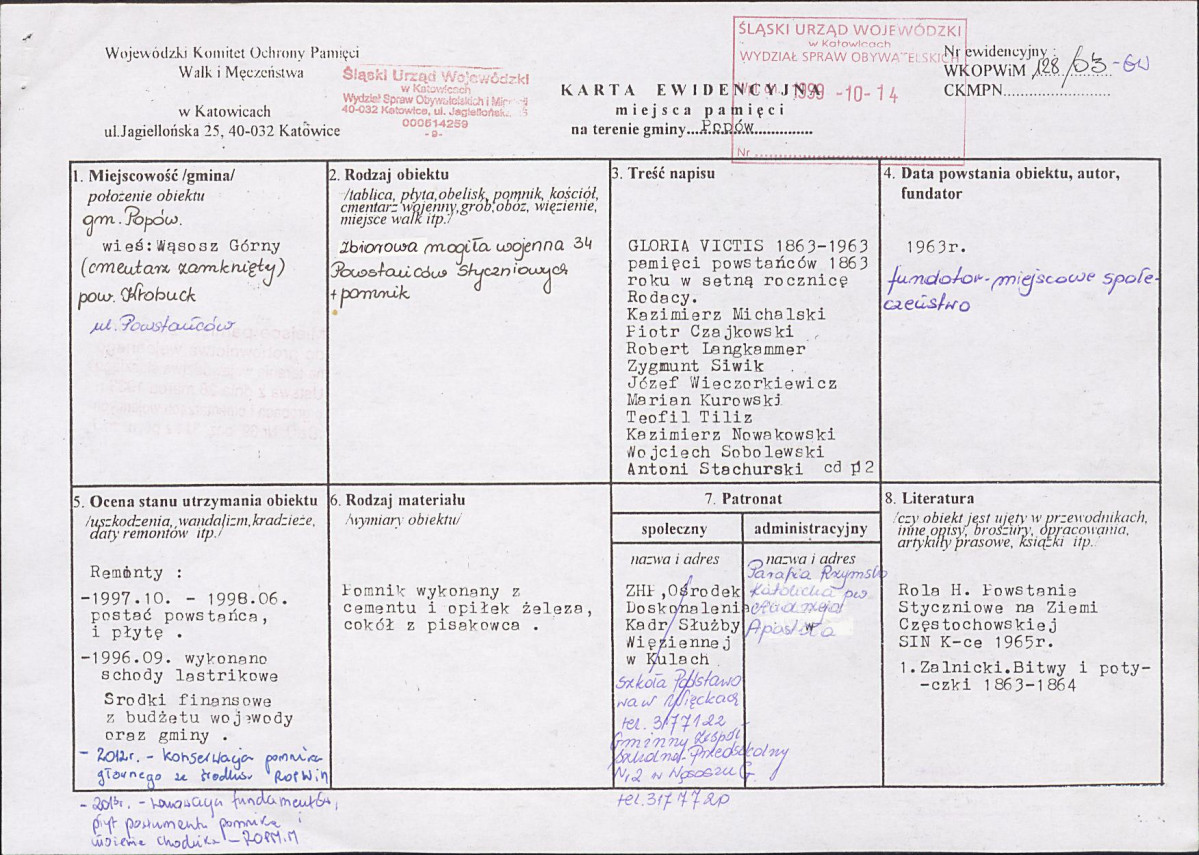 Wojewódzki Komitet Ochrony Pamięci
Walk i Męczeństwa
w Katowicach
ul.Jagiellońska 25, 40-032 Katowice
Śląski Urząd Wojewódzki
w Katowicach
Wydział Spraw Obywatelskich i
40-032 Katowice, ul. Jagiellońska
000514259
-9-
ŚLĄSKI URZĄD WOJEWÓDZKI
w Katowicach
WYDZIAŁ SPRAW OBYWATELSKICH
1999 -10- 14
Nr
KARTA EWIDENCYJNA
miejsca pamięci
na terenie gminy...Popów..............
Nr ewidencyjny :
WKOPWiM 128/03-GW
CKMPN........................
1. Miejscowość /gmina/
położenie obiektu
gm. Popów.
wieś: Wąsosz Górny
(cmentarz zamknięty)
pow. Kłobuck
ul. Powstańców
2. Rodzaj obiektu
/tablica, płyta,obelisk, pomnik, kościół,
cmentarz wojenny,grób,obóz, więzienie,
miejsce walk itp./
Zbiorowa mogiła wojenna 34
Powstańców Styczniowych
+ pomnik
3. Treść napisu
GLORIA VICTIS 1863-1963
pamięci powstańców 1863
roku w setną rocznicę
Rodacy.
Kazimierz Michalski
Piotr Czajkowski
Robert Langkammer
Zygmunt Siwik
Józef Wieczorkiewicz
Marian Kurowski
Teofil Tiliz
Kazimierz Nowakowski
Wojciech Sobolewski
Antoni Stachurski cd p2
4. Data powstania obiektu, autor,
fundator
1963r.
fundator-miejscowe społe-
czeństwo
5. Ocena stanu utrzymania obiektu
/uszkodzenia, wandalizm,kradzieże,
daty remontów itp./
Remonty :
-1997.10. - 1998.06.
postać powstańca,
i płytę .
-1996.09. wykonano
schody lastrikowe
Srodki finansowe
z budżetu wojewody
oraz gminy .
- 2012r. - konserwacja pomnika
głównego ze środków ROPWiM
- 2013r. - renowacja fundamentów,
płyt postumentu pomnika i
chodnika - ROPM.M
6. Rodzaj materiału
/wymiary obiektu/
Pomnik wykonany z
cementu i opiłek żeleza,
cokół z pisakowca .
7. Patronat
społeczny
nazwa i adres
ZHP,Ośrodek
Doskonalenia
Kadr Służby
Więziennej
w Kulach
Szkoła Podstawo
wa w Więckach
tel. 3177122
Gminny Zespół
Szkolno-Przedszkolny
Nr 2 w Wąsoszu G.
tel. 3177720
administracyjny
nazwa i adres
Parafia Rzymsko
katolicka pw
Andrzeja
Apostoła
8. Literatura
/czy obiekt jest ujęty w przewodnikach,
inne opisy, broszury, opracowania,
artykuły prasowe, książki itp./
Rola H. Powstanie
Styczniowe na Ziemi
Częstochowskiej
SIN K-ce 1965r.
1.Zalnicki.Bitwy i poty-
-czki 1863-1864